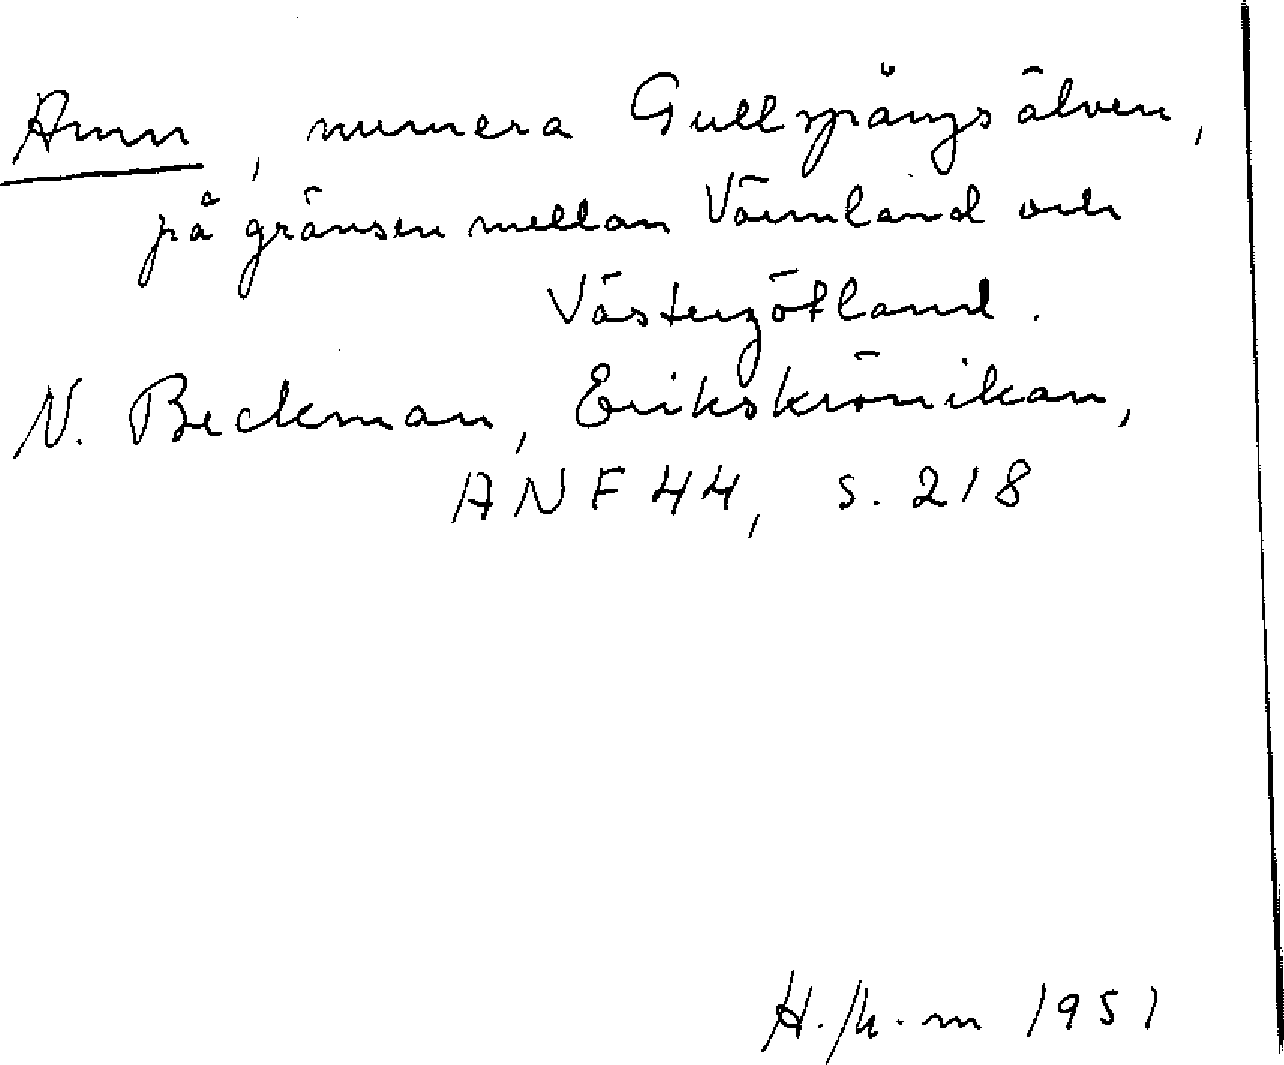 Amn, numera Gullspångsälven,
på gränsen mellan Värmland och
Västergötland.
N. Beckman, Erikskrönikan,
ANF 44, s. 218
1951